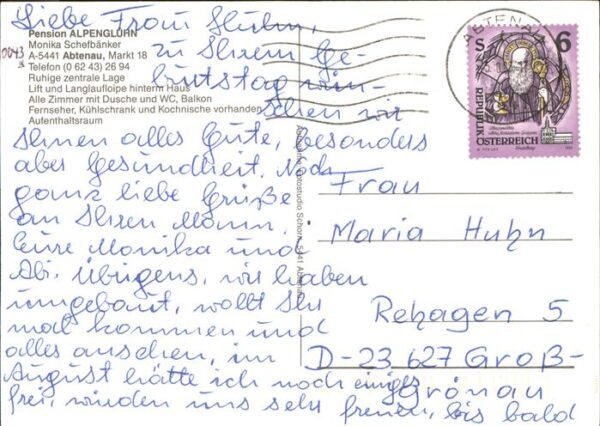 Liebe Frau Huhn,
zu Ihrem Ge-
burtstag wün-
schen wir
Ihnen alles Gute, besonders
aber Gesundheit. Noch
ganz liebe Grüße
an Ihren Mann.
Eure Monika und
Abi. Übrigens, wir haben
umgebaut, wollt Ihr
mal kommen und
alles ansehen, im
August hätte ich noch einiges
frei, würden uns sehr freuen, bis bald
Pension ALPENGLÜHN
Monika Schefbänker
A-5441 Abtenau, Markt 18
Telefon (0 62 43) 26 94
Ruhige zentrale Lage
Lift und Langlaufloipe hinterm Haus
Alle Zimmer mit Dusche und WC, Balkon
Fernseher, Kühlschrank und Kochnische vorhanden
Aufenthaltsraum
0043
Fotostudio Schorn, 5441 Abtenau
ABTENAU
S 6
REPUBLIK
ÖSTERREICH
Frau
Maria Huhn
Rehagen 5
D-23627 Groß-
Grönau